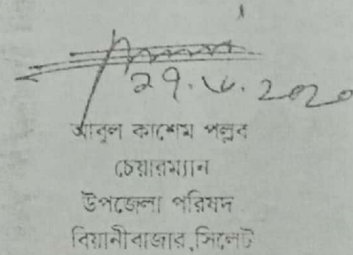 ২৭.৬.২০২০
আবুল কাশেম পল্লব
চেয়ারম্যান
উপজেলা পরিষদ
বিয়ানীবাজার,সিলেট